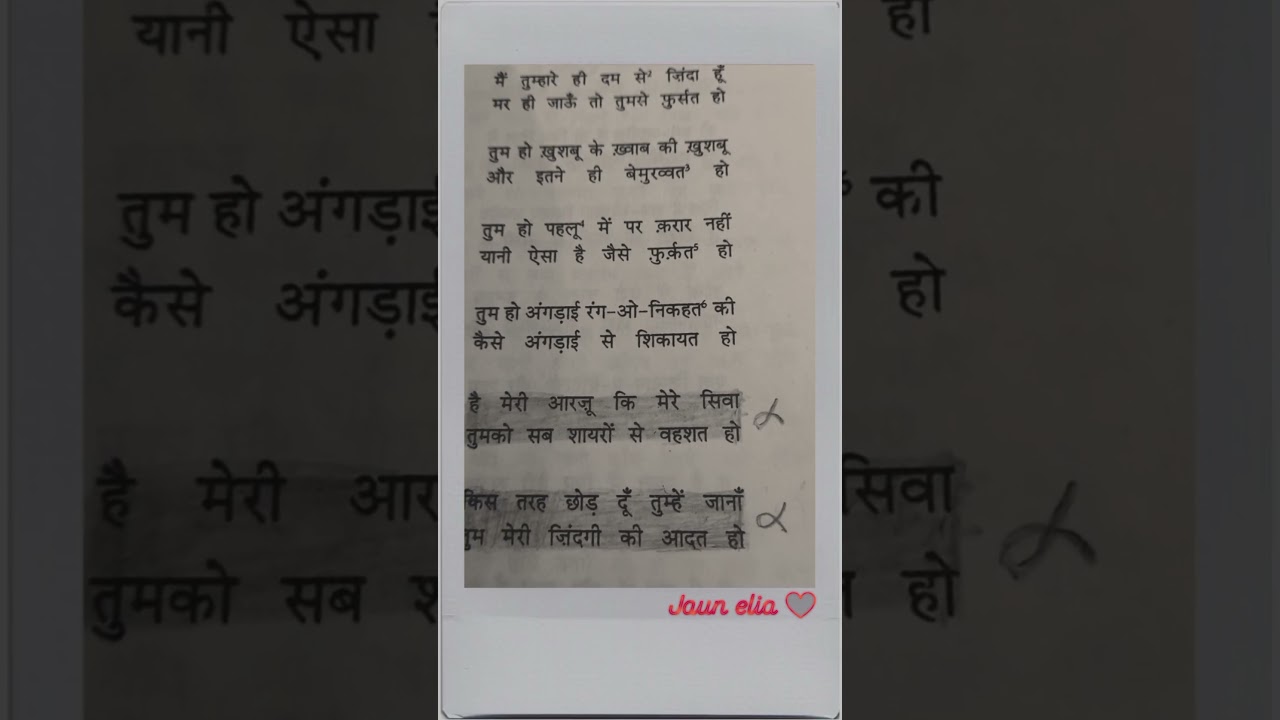 मैं तुम्हारे ही दम से² ज़िंदा हूँ
मर ही जाऊँ तो तुमसे फ़ुर्सत हो
तुम हो ख़ुशबू के ख़्वाब की ख़ुशबू
और इतने ही बेमुरव्वत³ हो
तुम हो पहलू⁴ में पर क़रार नहीं
यानी ऐसा है जैसे फ़ुर्क़त⁵ हो
तुम हो अंगड़ाई रंग-ओ-निकहत⁶ की
कैसे अंगड़ाई से शिकायत हो
है मेरी आरज़ू कि मेरे सिवा
तुमको सब शायरों से वहशत हो
किस तरह छोड़ दूँ तुम्हें जानाँ
तुम मेरी ज़िंदगी की आदत हो
Jaun elia